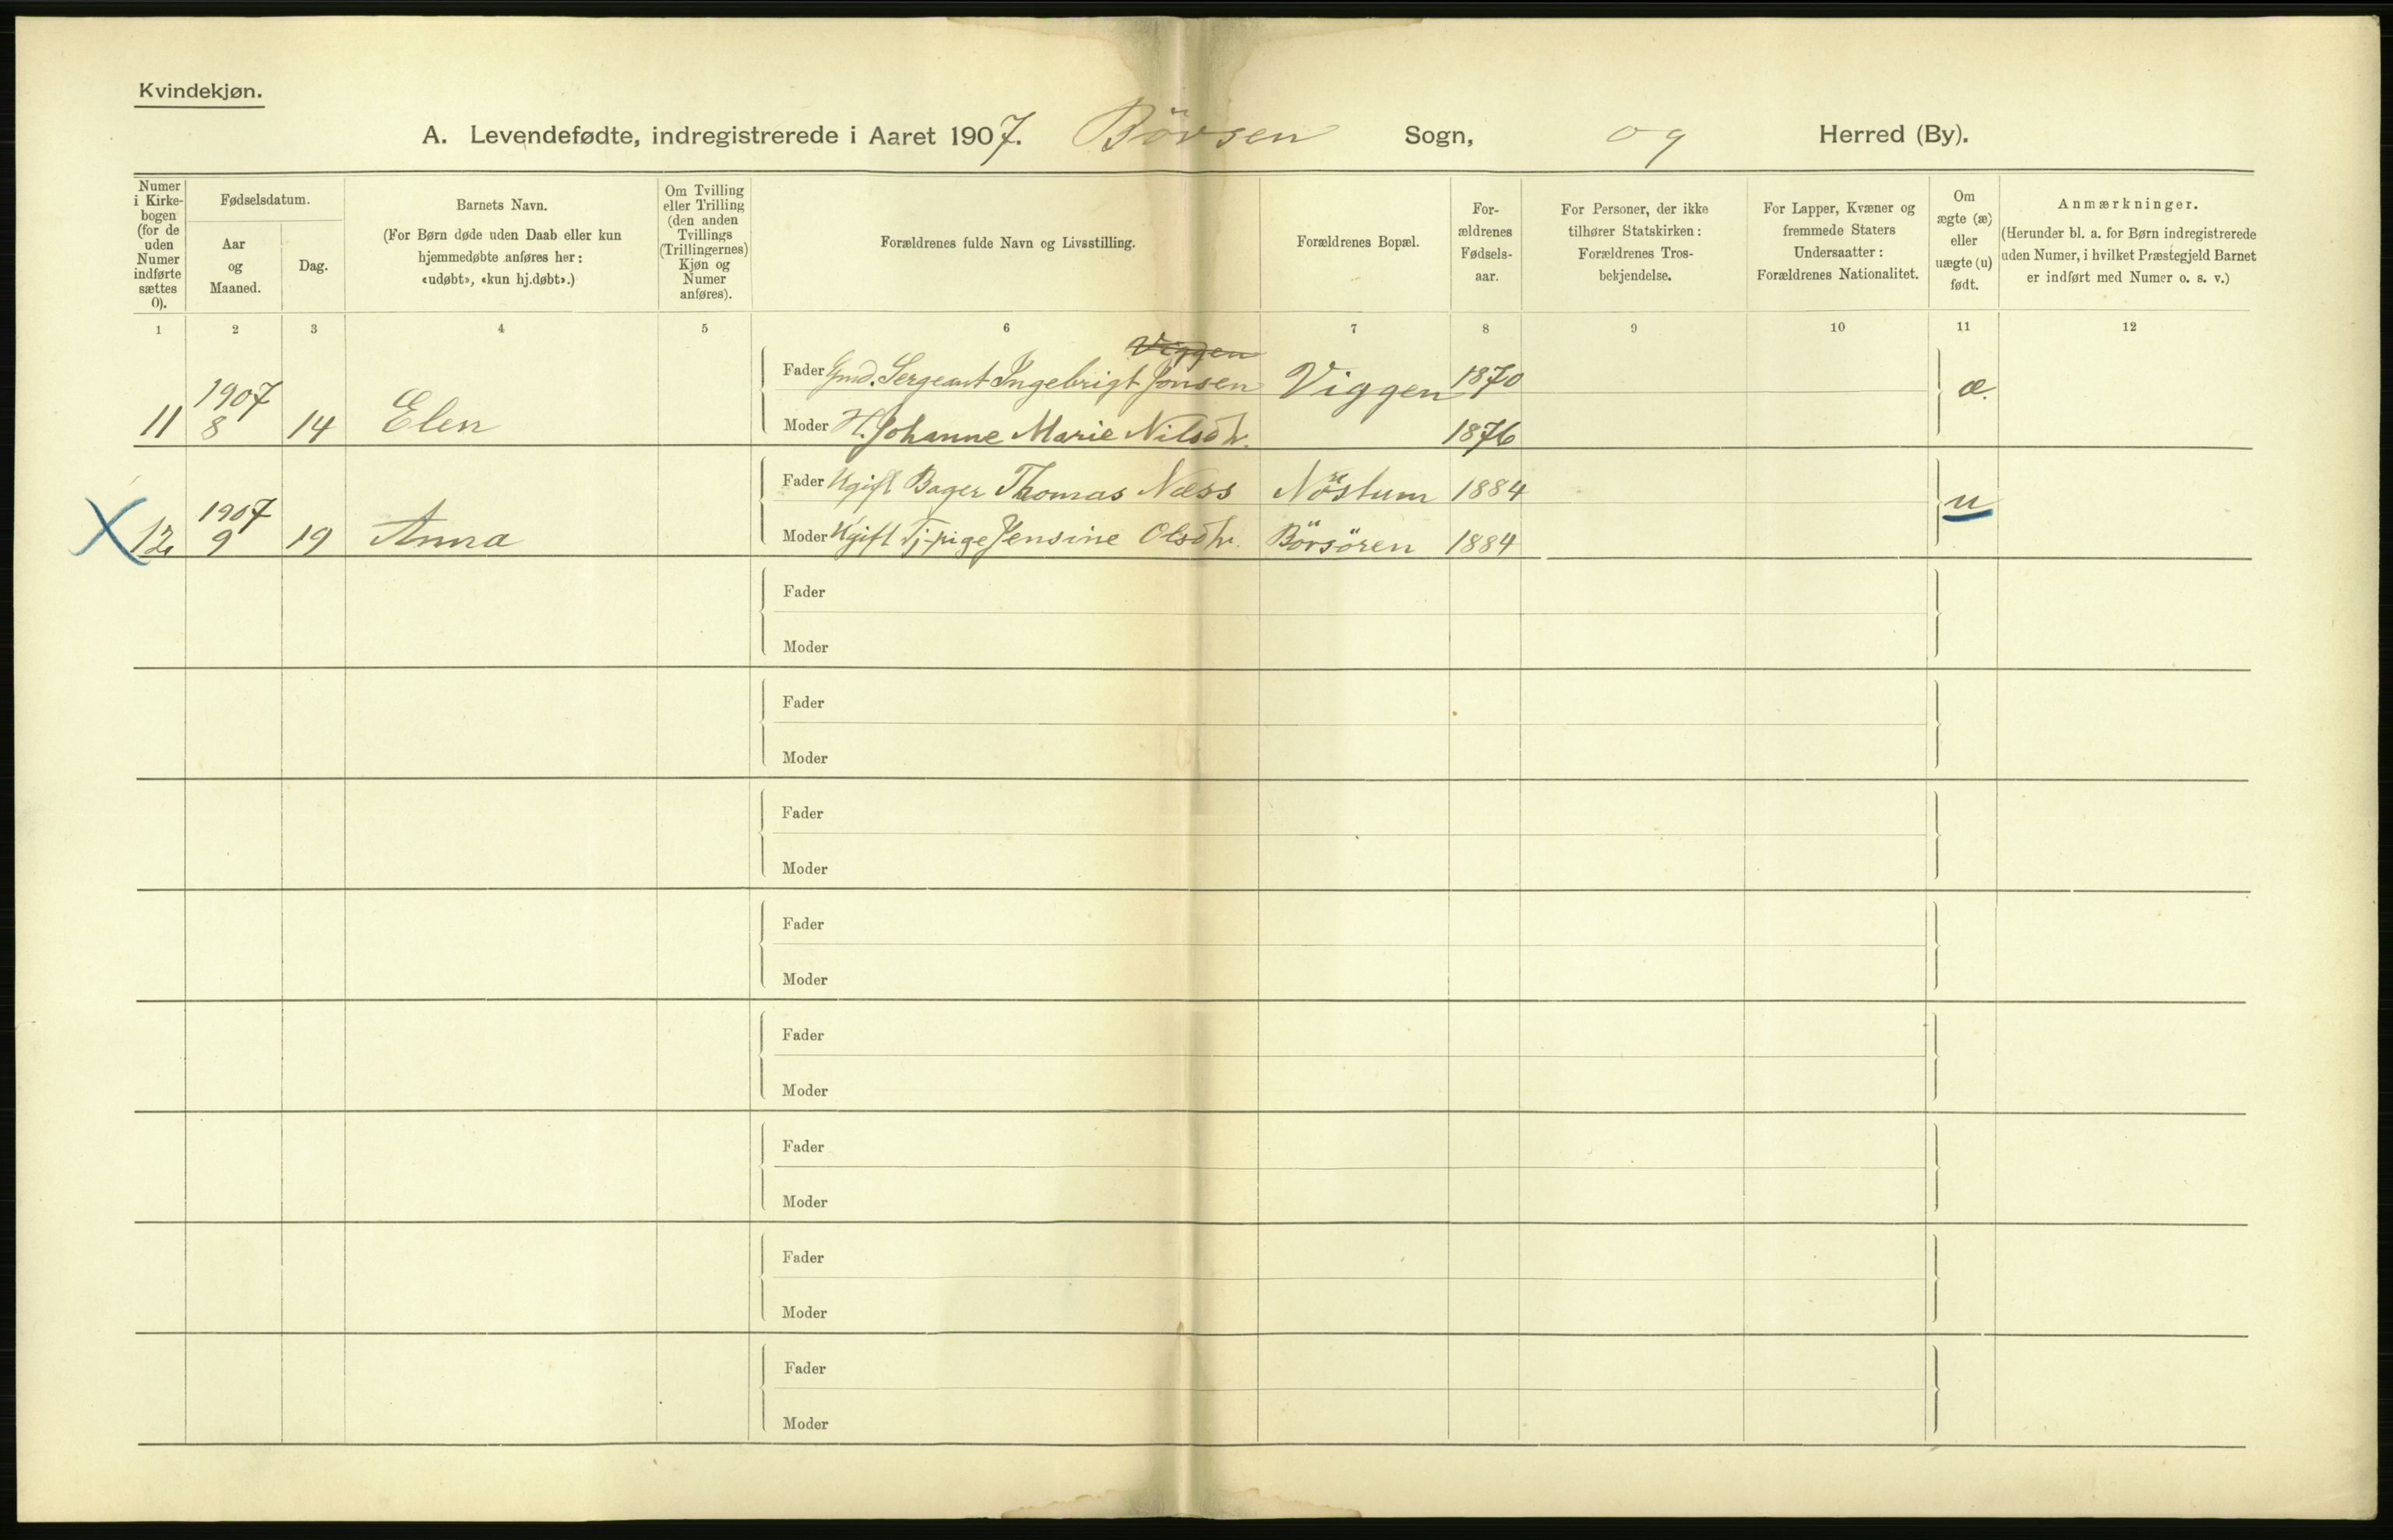 Kvindekjøn.
A. Levendefødte, indregistrerede i Aaret 1907. Börsen Sogn, og Herred (By).
Numer i Kirkebogen (for de uden Numer indførte sættes 0).
Fødselsdatum.
Aar og Maaned.
Dag.
Barnets Navn.
(For Børn døde uden Daab eller kun hjemmedøbte anføres her: «udøbt», «kun hj.døbt».)
Om Tvilling eller Trilling (den anden Tvillings (Trillingernes) Kjøn og Numer anføres).
Forældrenes fulde Navn og Livsstilling.
Forældrenes Bopæl.
Forældrenes Fødselsaar.
For Personer, der ikke tilhører Statskirken: Forældrenes Trosbekjendelse.
For Lapper, Kvæner og fremmede Staters Undersaatter: Forældrenes Nationalitet.
Om ægte (æ) eller uægte (u) født.
Anmærkninger.
(Herunder bl. a. for Børn indregistrerede uden Numer, i hvilket Præstegjeld Barnet er indført med Numer o. s. v.)
1 2 3 4 5 6 7 8 9 10 11 12
Viggen
Fader Gmd. Sergeant Ingebrigt Jonsen Viggen 1870 æ.
11 1907 8 14 Elen
Moder H. Johanne Marie Nilsdtr. 1876
Fader Ugift Bager Thomas Næss Nöstum 1884 u
X 12 1907 9 19 Anna
Moder Ugift Tj.pige Jensine Olsdtr. Börsören 1884
Fader
Moder
Fader
Moder
Fader
Moder
Fader
Moder
Fader
Moder
Fader
Moder
Fader
Moder
Fader
Moder